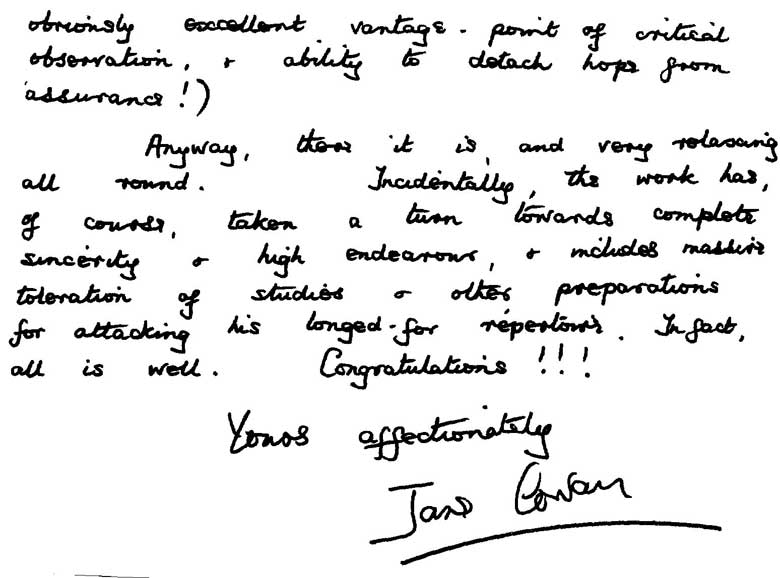 obviously excellent vantage-point of critical
observation, & ability to detach hope from
assurance!)
Anyway, there it is, and very relaxing
all round. Incidentally, the work has,
of course, taken a turn towards complete
sincerity & high endeavour, & includes massive
toleration of studies & other preparations
for attacking his longed-for répertoire. In fact,
all is well. Congratulations!!!
Yours affectionately
Jane Cowan